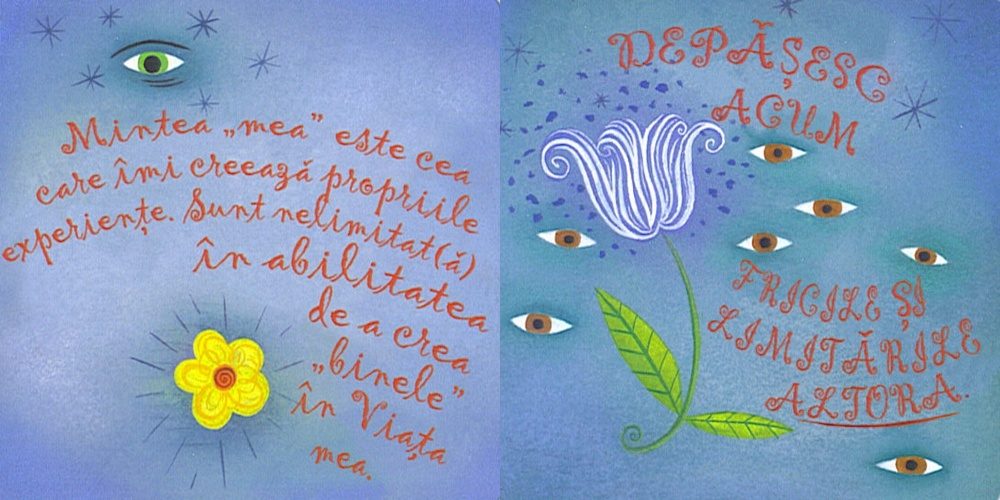 Mintea „mea” este cea
care îmi creează propriile
experiențe. Sunt nelimitat(ă)
în abilitatea
de a crea
„binele”
în Viața
mea.
DEPĂȘESC
ACUM
FRICILE ȘI
LIMITĂRILE
ALTORA.